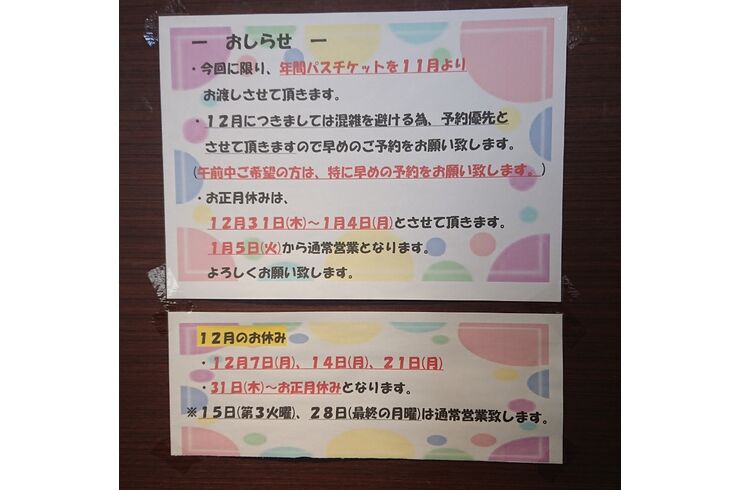 ー おしらせ ー
・今回に限り、年間パスチケットを11月より
お渡しさせて頂きます。
・12月につきましては混雑を避ける為、予約優先と
させて頂きますので早めのご予約をお願い致します。
(午前中ご希望の方は、特に早めの予約をお願い致します。)
・お正月休みは、
12月31日(木)～1月4日(月)とさせて頂きます。
1月5日(火)から通常営業となります。
よろしくお願い致します。
12月のお休み
・12月7日(月)、14日(月)、21日(月)
・31日(木)～お正月休みとなります。
※15日(第3火曜)、28日(最終の月曜)は通常営業致します。